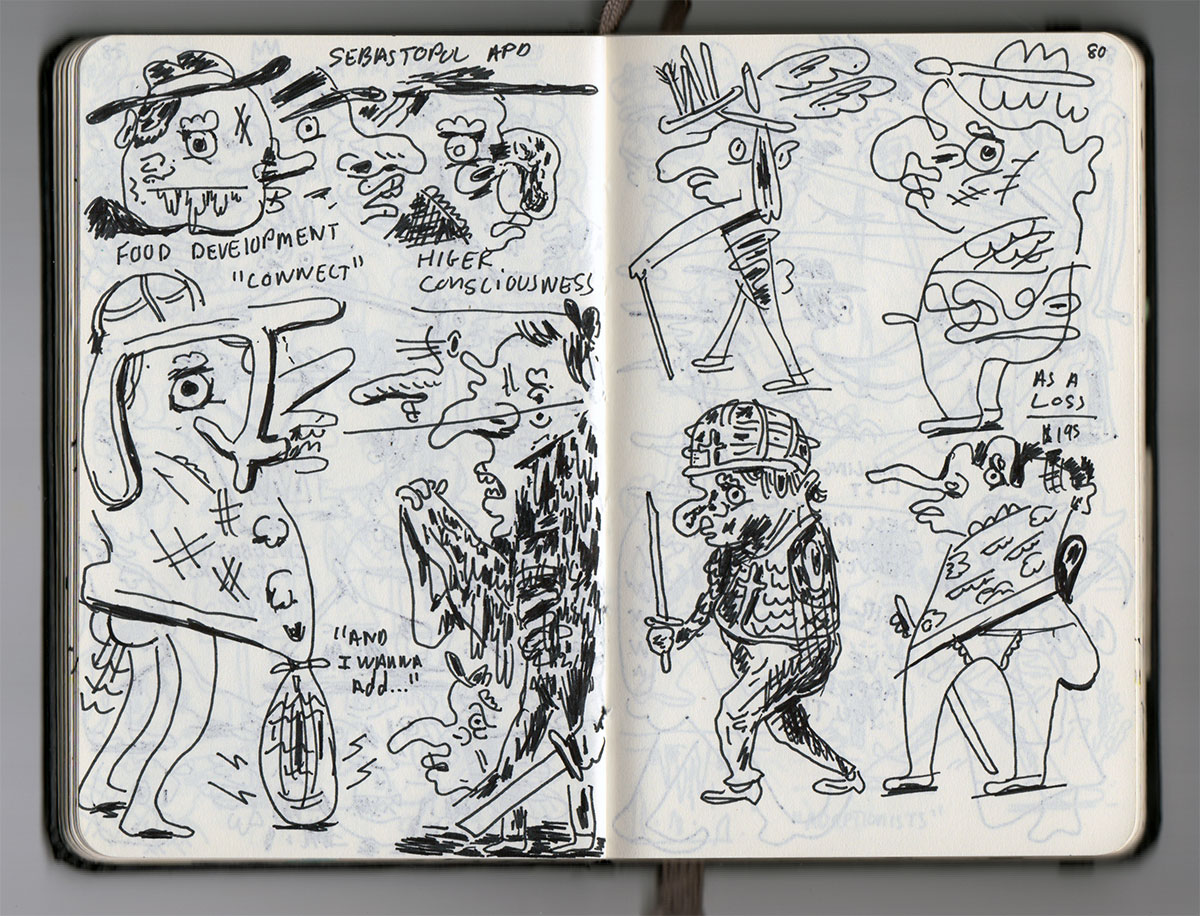 SEBASTOPOL APO
FOOD DEVELOPMENT
"CONNECT"
HIGER
CONSCIOUSNESS
"AND
I WANNA
ADD..."
80
AS A
LOSS
$195
"ADOPTIONISTS"